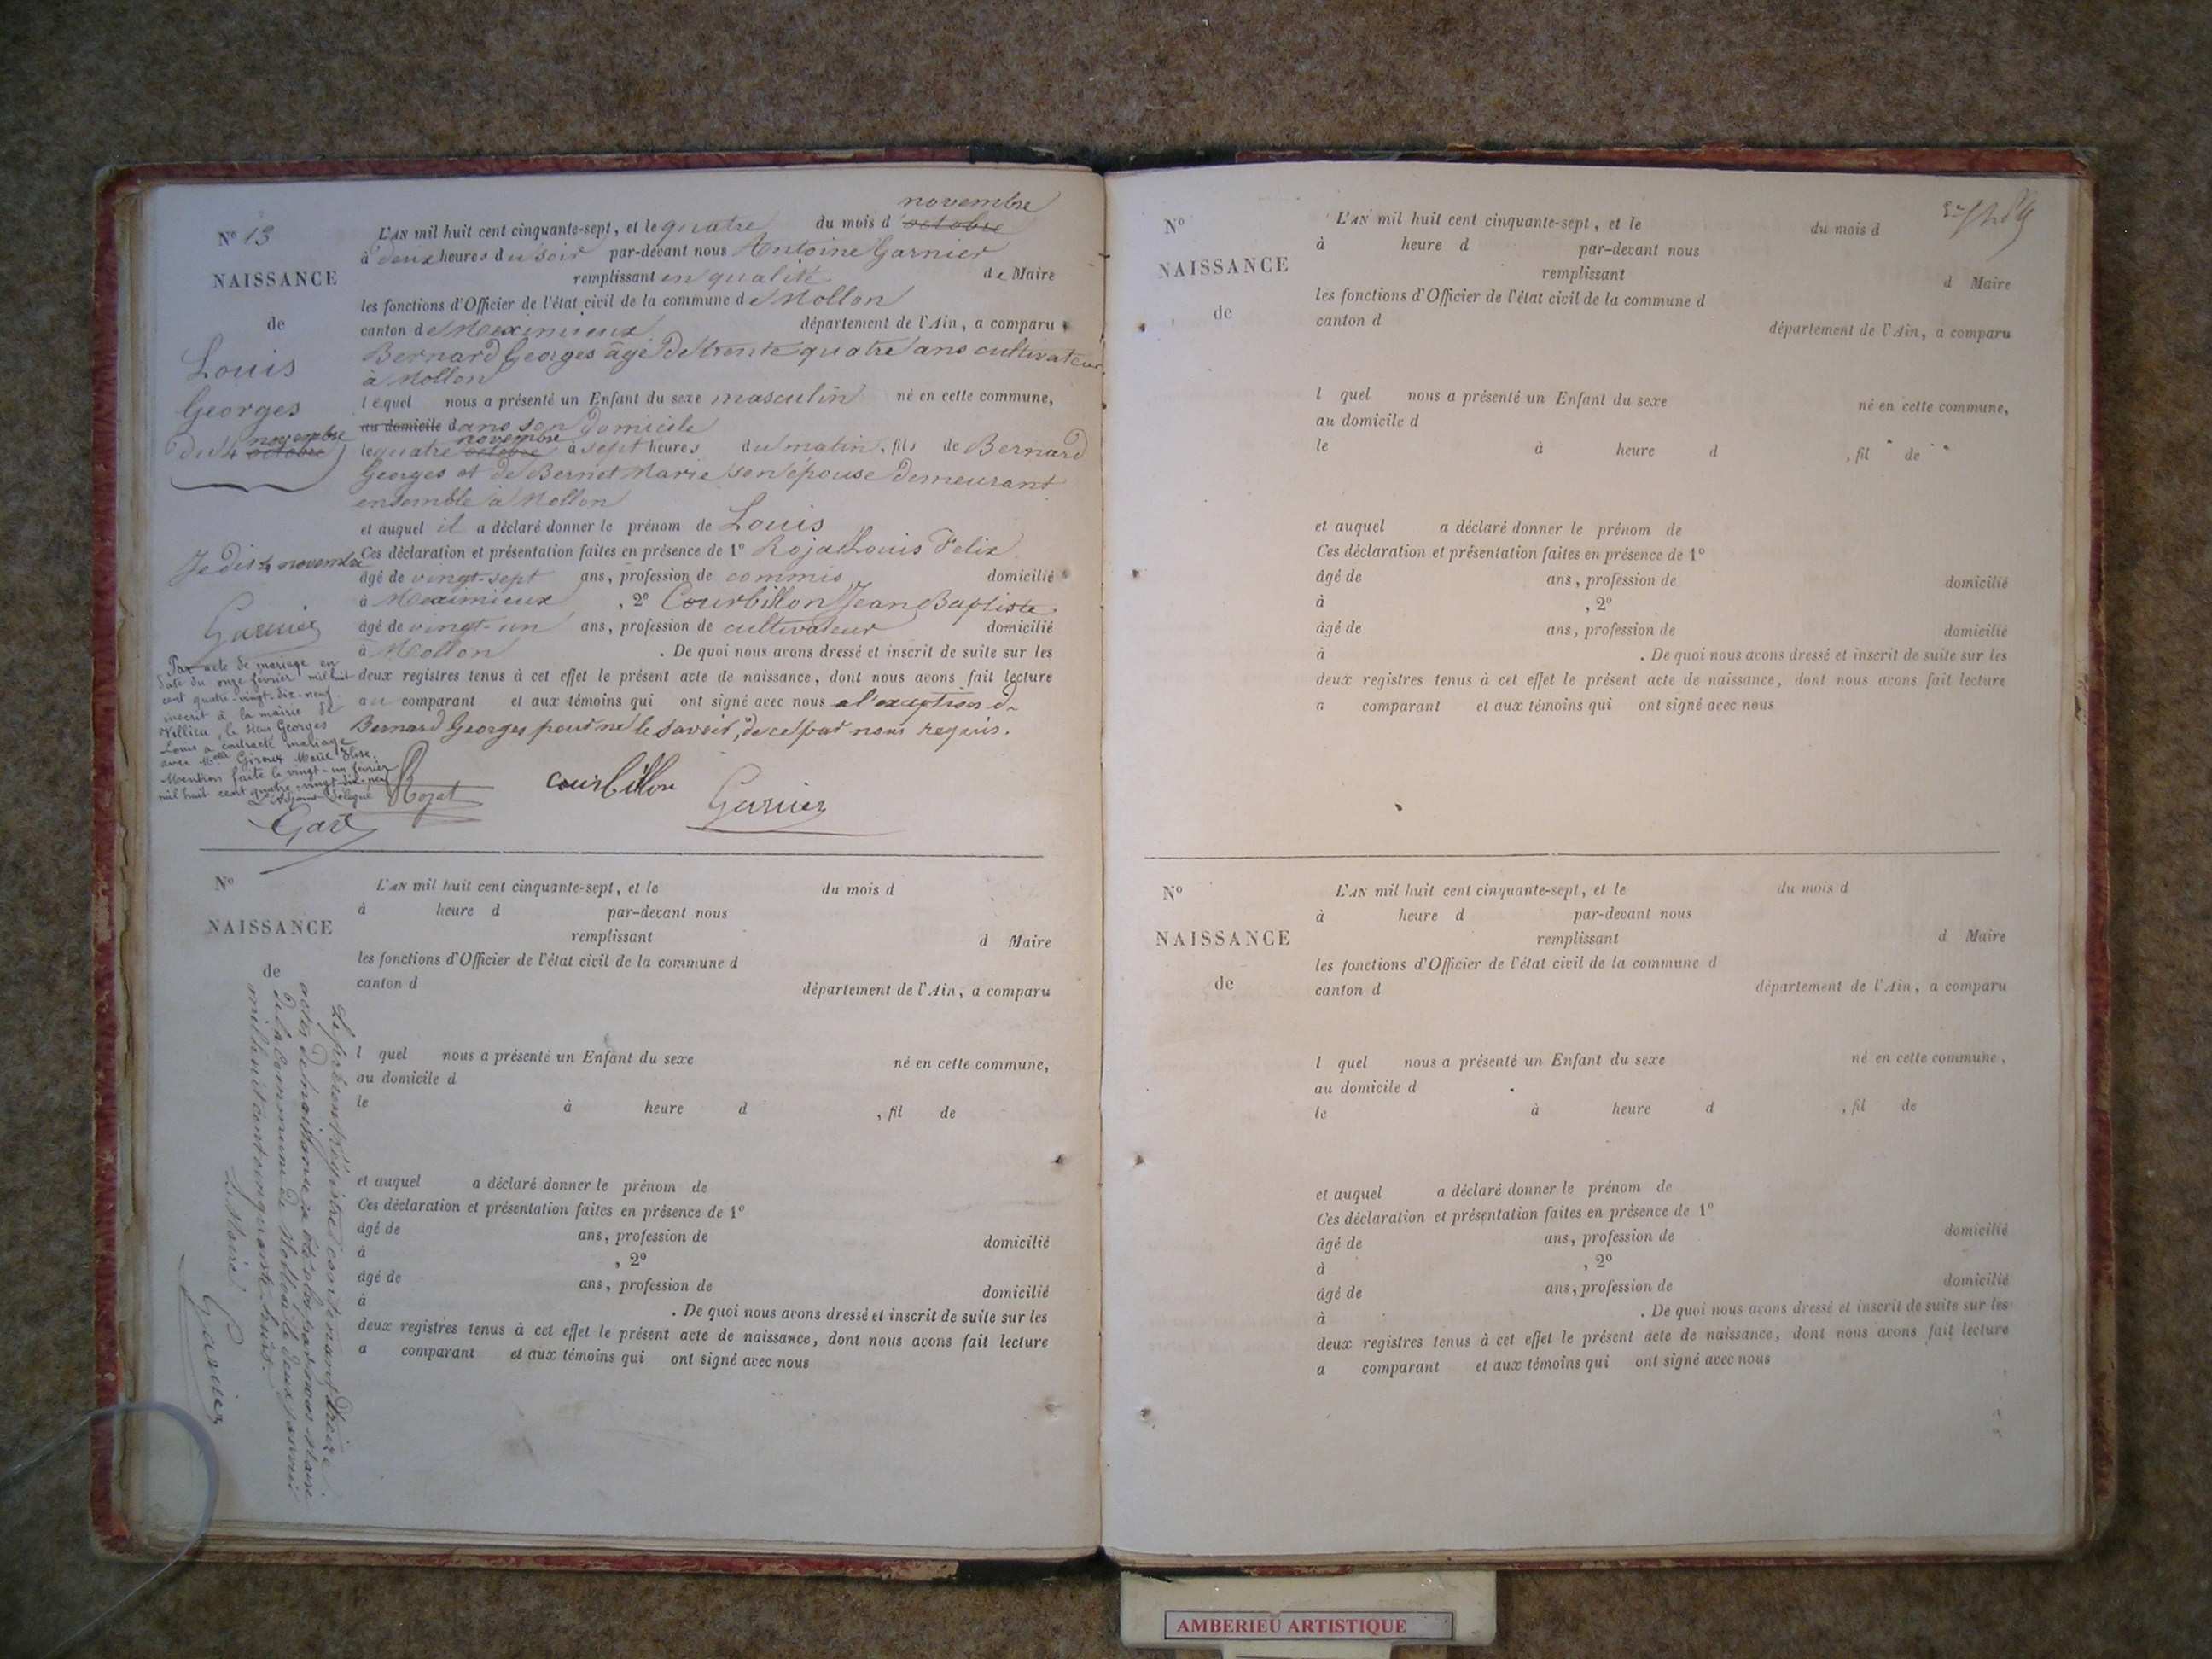 novembre
N° 13
L'AN mil huit cent cinquante-sept, et le quatre du mois d'octobre
à deux heures du soir par-devant nous Antoine Garnier
NAISSANCE
remplissant en qualité de Maire
les fonctions d'Officier de l'état civil de la commune de Mollon
de
canton de Meximieux département de l'Ain, a comparu
Louis
Bernard Georges âgé de trente quatre ans cultivateur
à Mollon
Georges
lequel nous a présenté un Enfant du sexe masculin né en cette commune,
au domicile dans son domicile
novembre
novembre
du 4 octobre
le quatre octobre à sept heures du matin, fils de Bernard
Georges et de Bernet Marie son épouse demeurant
ensemble à Mollon
et auquel il a déclaré donner le prénom de Louis
Je dis 4 novembre
Ces déclaration et présentation faites en présence de 1° Rojat Louis Felix
âgé de vingt-sept ans, profession de commis domicilié
à Meximieux , 2° Courbillon Jean Baptiste
Garnier
âgé de vingt-un ans, profession de cultivateur domicilié
à Mollon . De quoi nous avons dressé et inscrit de suite sur les
deux registres tenus à cet effet le présent acte de naissance, dont nous avons fait lecture
au comparant et aux témoins qui ont signé avec nous a l'exception de
Bernard Georges pour ne le savoir, de ce par nous requis.
Par acte de mariage en
date du onze février mil huit
cent quatre-vingt-dix-neuf
inscrit à la mairie de
Villieu, le sieur Georges
Louis a contracté mariage
avec Mlle Giroux Marie Elise.
Mention faite le vingt-un février
mil huit cent quatre-vingt-dix-neuf
L'Adjoint délégué
Rojat
courbillon
Garnier
N°
L'AN mil huit cent cinquante-sept, et le du mois d
à heure d par-devant nous
NAISSANCE
remplissant d Maire
les fonctions d'Officier de l'état civil de la commune d
de
canton d département de l'Ain, a comparu
l quel nous a présenté un Enfant du sexe né en cette commune,
au domicile d
le à heure d , fil de
et auquel a déclaré donner le prénom de
Ces déclaration et présentation faites en présence de 1°
âgé de ans, profession de domicilié
à , 2°
âgé de ans, profession de domicilié
à . De quoi nous avons dressé et inscrit de suite sur les
deux registres tenus à cet effet le présent acte de naissance, dont nous avons fait lecture
a comparant et aux témoins qui ont signé avec nous
Le présent régistre contenant treize
actes de naissance a été clos par nous Maire
de la Commune de Mollon le deux janvier
mil huit cent cinquante-huit.
Le Maire
Garnier
N°
L'AN mil huit cent cinquante-sept, et le du mois d
à heure d par-devant nous
NAISSANCE
remplissant d Maire
les fonctions d'Officier de l'état civil de la commune d
de
canton d département de l'Ain, a comparu
l quel nous a présenté un Enfant du sexe né en cette commune,
au domicile d
le à heure d , fil de
et auquel a déclaré donner le prénom de
Ces déclaration et présentation faites en présence de 1°
âgé de ans, profession de domicilié
à , 2°
âgé de ans, profession de domicilié
à . De quoi nous avons dressé et inscrit de suite sur les
deux registres tenus à cet effet le présent acte de naissance, dont nous avons fait lecture
a comparant et aux témoins qui ont signé avec nous
N°
L'AN mil huit cent cinquante-sept, et le du mois d
à heure d par-devant nous
NAISSANCE
remplissant d Maire
les fonctions d'Officier de l'état civil de la commune d
de
canton d département de l'Ain, a comparu
l quel nous a présenté un Enfant du sexe né en cette commune,
au domicile d
le à heure d , fil de
et auquel a déclaré donner le prénom de
Ces déclaration et présentation faites en présence de 1°
âgé de ans, profession de domicilié
à , 2°
âgé de ans, profession de domicilié
à . De quoi nous avons dressé et inscrit de suite sur les
deux registres tenus à cet effet le présent acte de naissance, dont nous avons fait lecture
a comparant et aux témoins qui ont signé avec nous
AMBERIEU ARTISTIQUE